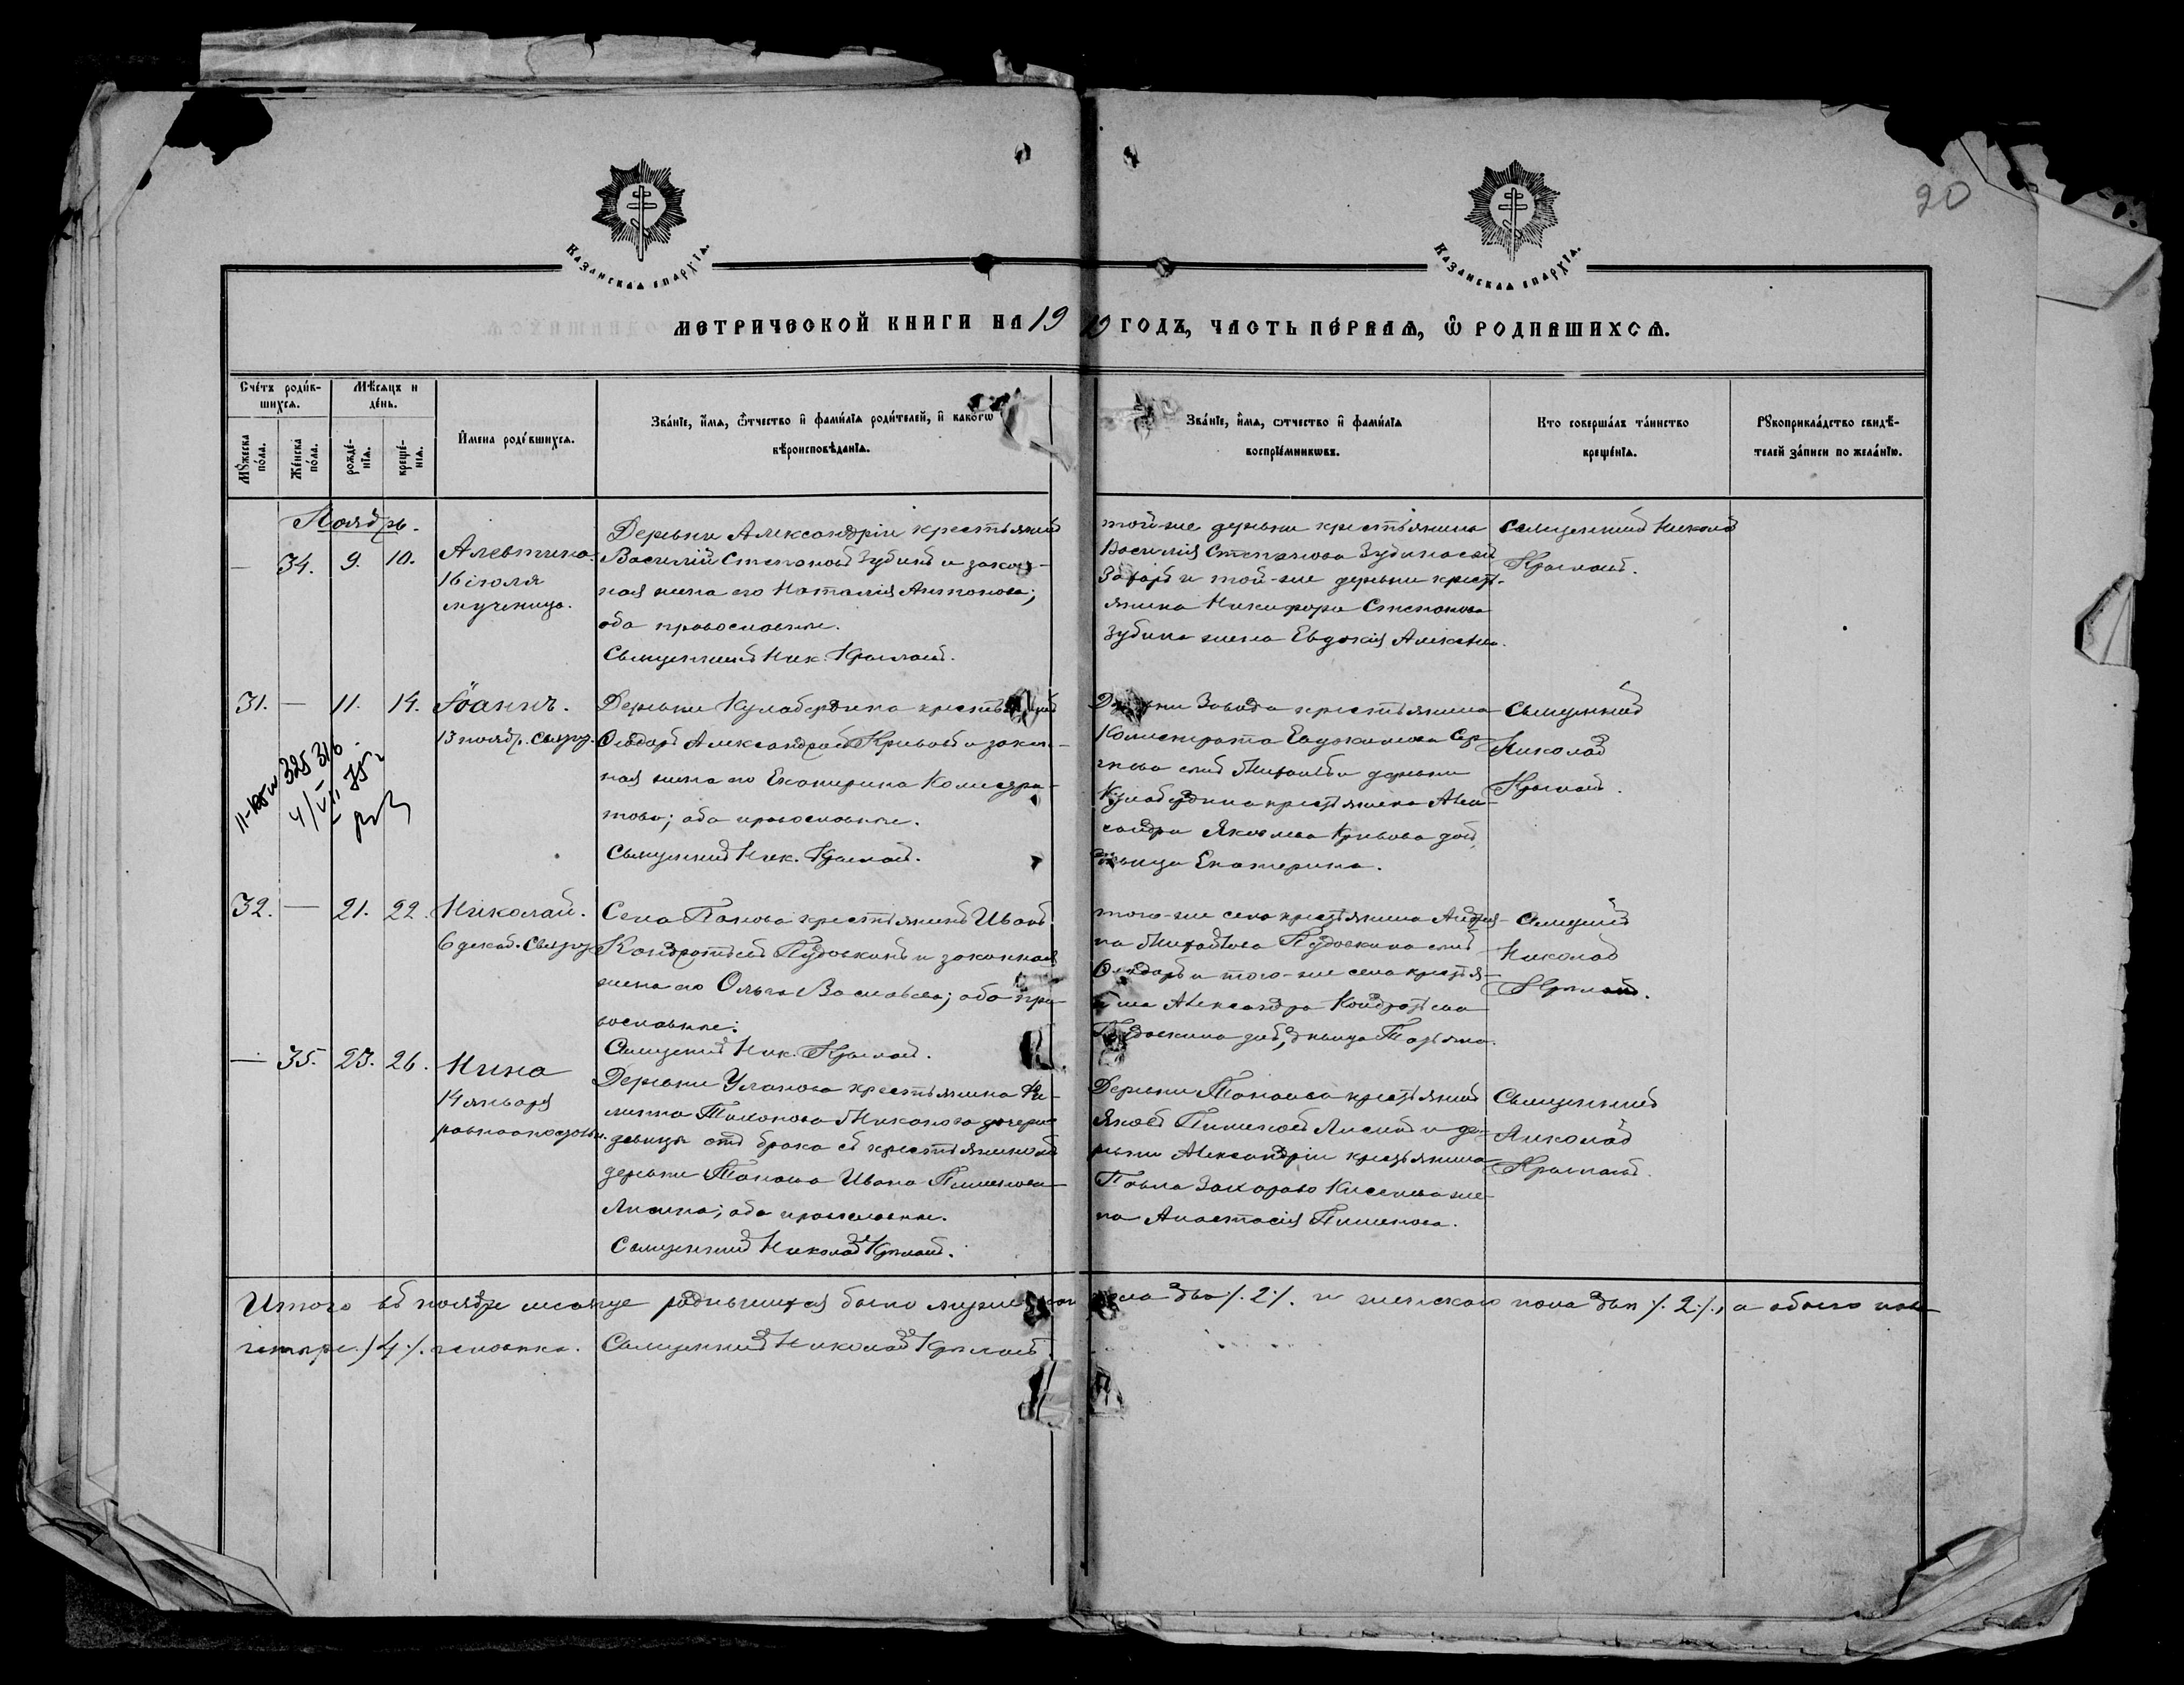 20
Казанская епархїа.
Казанская епархїа.
МЕТРИЧЕСКОЙ КНИГИ НА 19 19 ГОДЪ, ЧАСТЬ ПЕРВАЯ, Ѿ РОДИВШИХСЯ.
Сче́тъ роди́в-
шихся.
Мѣ́сяцъ и
де́нь.
И҆мена роди́вшихся.
Зва́нїе, и҆́мя, ѻ҆́тчество и҆ фами́лїя роди́телей, и҆ како́гѡ
вѣроисповѣ́данїя.
Зва́нїе, и҆́мя, ѻ҆тчество и҆ фами́лїя
воспрїе́мникѡвъ.
Кто соверша́лъ та́инство
креще́нїя.
Рꙋкоприкла́дство свидѣ́-
телей за́писи по жела́нїю.
Мꙋ́жеска
по́ла.
Же́нска
по́ла.
рожде́-
нїя.
креще́-
нїя.
Ноябрь.
— 34. 9. 10.
Алевтина.
16 іюля
мученица.
Деревни Александріи крестьянинъ
Василій Степановъ Зубинъ и закон-
ная жена его Наталія Антонова;
оба православные.
Священникъ Ник. Крылавъ.
той-же деревни крестьянина
Василія Степанова Зубина сынъ
Захаръ и той-же деревни кресть-
янина Никифора Степанова
Зубина жена Евдокія
Священникъ Николай
Крылавъ.
31. — 11. 14.
Іоаннъ.
13 ноябр. святит.
Деревни Кулабердина
Ѳеодоръ Александровъ Кривовъ и закон-
ная жена его Екатерина Калистра-
това; оба православные.
Священникъ Ник. Крылавъ.
Завода крестьянина
Калистрата Евдокимова Сер-
гѣева сынъ и деревни
Кулабердина крестьянина Алек-
сандра Яковлева Кривова доч.
дѣвица Екатерина.
Священникъ
Николай
Крылавъ.
325 316
4/VII 75 г
32. — 21. 22.
Николай.
6 декаб. святит.
Села Панова крестьянинъ Иванъ
Кондратьевъ Пудовкинъ и законная
жена его Ольга Васильева; оба пра-
вославные.
Священникъ Ник. Крылавъ.
того-же села крестьянина
на Михайлова Пудовкина сынъ
Ѳеодоръ и того-же села крестья-
нина Александра Кондратьева
Пудовкина доч. дѣвица Татьяна.
Священникъ
Николай
Крылавъ.
— 35. 23. 26.
Нина
14 января
равноапостольн.
Деревни Уланова крестьянина Фи-
липпа Тихонова дочери
дѣвицы отъ брака съ крестьяниномъ
деревни Танаева Ивана Пименова
Лисина; оба православные.
Священникъ Николай Крылавъ.
Деревни Танаева крестьянинъ
Яковъ Пименовъ Лисинъ и де-
ревни Александріи крестьянина
Павла Захарова Киселева же-
на Анастасія Пименова.
Священникъ
Николай
Крылавъ.
Итого въ ноябрѣ мѣсяцѣ родившихся было мужескаго пола два ./. 2 ./. и женскаго пола два ./. 2 ./., а обоего пола
четыре ./ 4 ./. человѣка. Священникъ Николай Крылавъ.